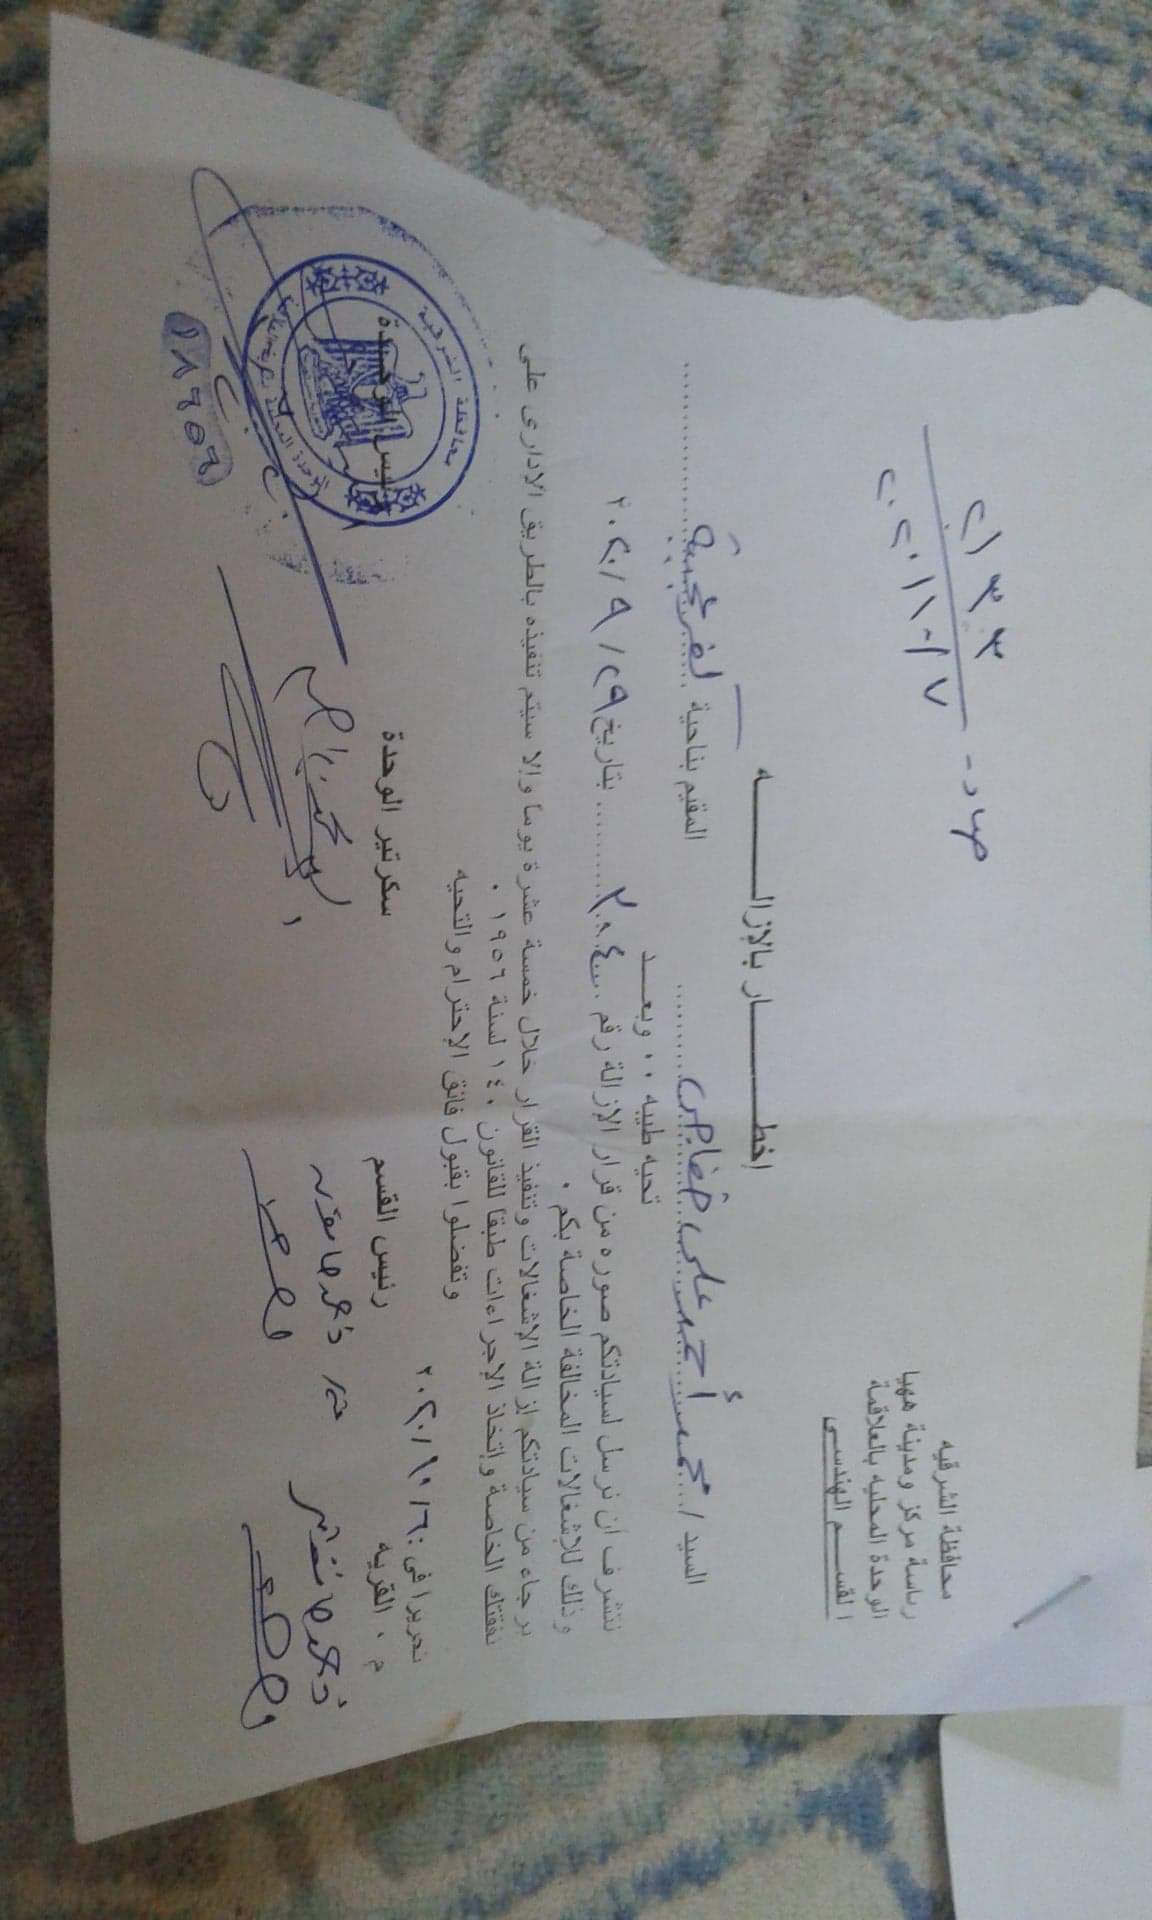 محافظة الشرقيه
رئاسة مركز ومدينة ههيا
الوحدة المحليه بالعلاقمة
القسم الهندسى
صادر
٢١٣٣
٢٠٢٠/١٠/٧
إخطـــــار بالإزالـــــــه
السيد / محمد أحمد على ........ المقيم بناحية
تحيه طيبه .. وبعــد
نتشرف أن نرسل لسيادتكم صوره من قرار الإزالة رقم ........ بتاريخ ٢٠٢٠/٩/٢٩
وذلك للإشغالات المخالفة الخاصة بكم .
برجاء من سيادتكم إزالة الإشغالات وتنفيذ القرار خلال خمسة عشرة يوما وإلا سيتم تنفيذه بالطريق الادارى على
نفقتك الخاصة وإتخاذ الإجراءات طبقا للقانون ١٤٠ لسنة ١٩٥٦ .
وتفضلوا بقبول فائق الإحترام والتحيه
تحريرا فى : ٢٠٢٠/١٠/٦
م . القريه
رئيس القسم
سكرتير الوحدة
رئيس الوحدة
محافظة الشرقية
الوحدة المحلية